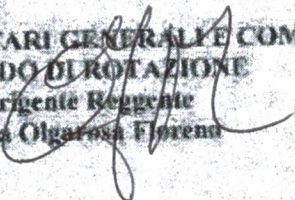 ARI GENERALI E COM
DO DI ROTAZIONE
rigente Reggente
a Olgarosa Florena